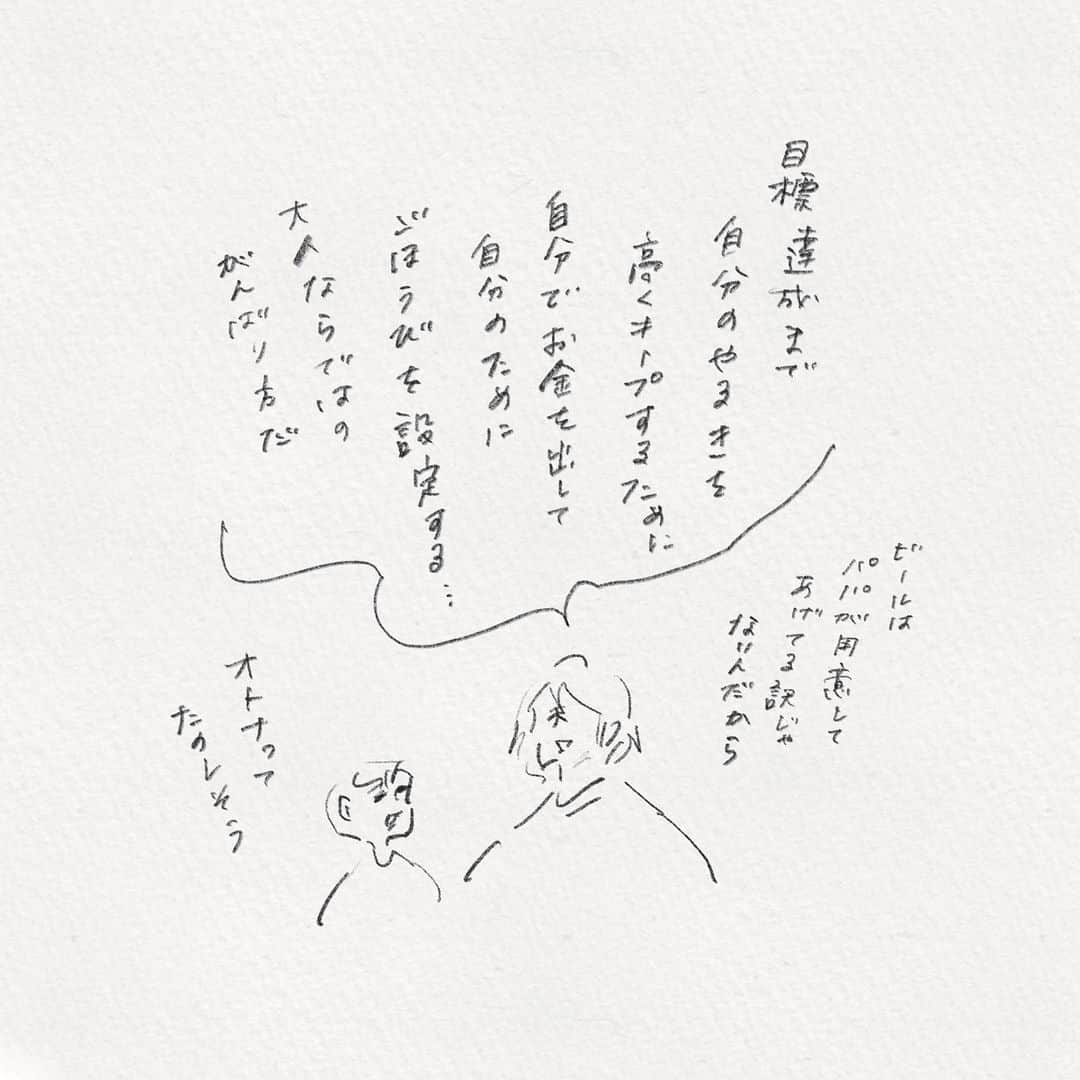 目標達成まで
自分のやるきを
高くキープするために
自分でお金を出して
自分のために
ごほうびを設定する…
大人ならではの
がんばり方だ
ビールは
パパが用意して
あげてる訳じゃ
ないんだから
オトナって
たのしそう